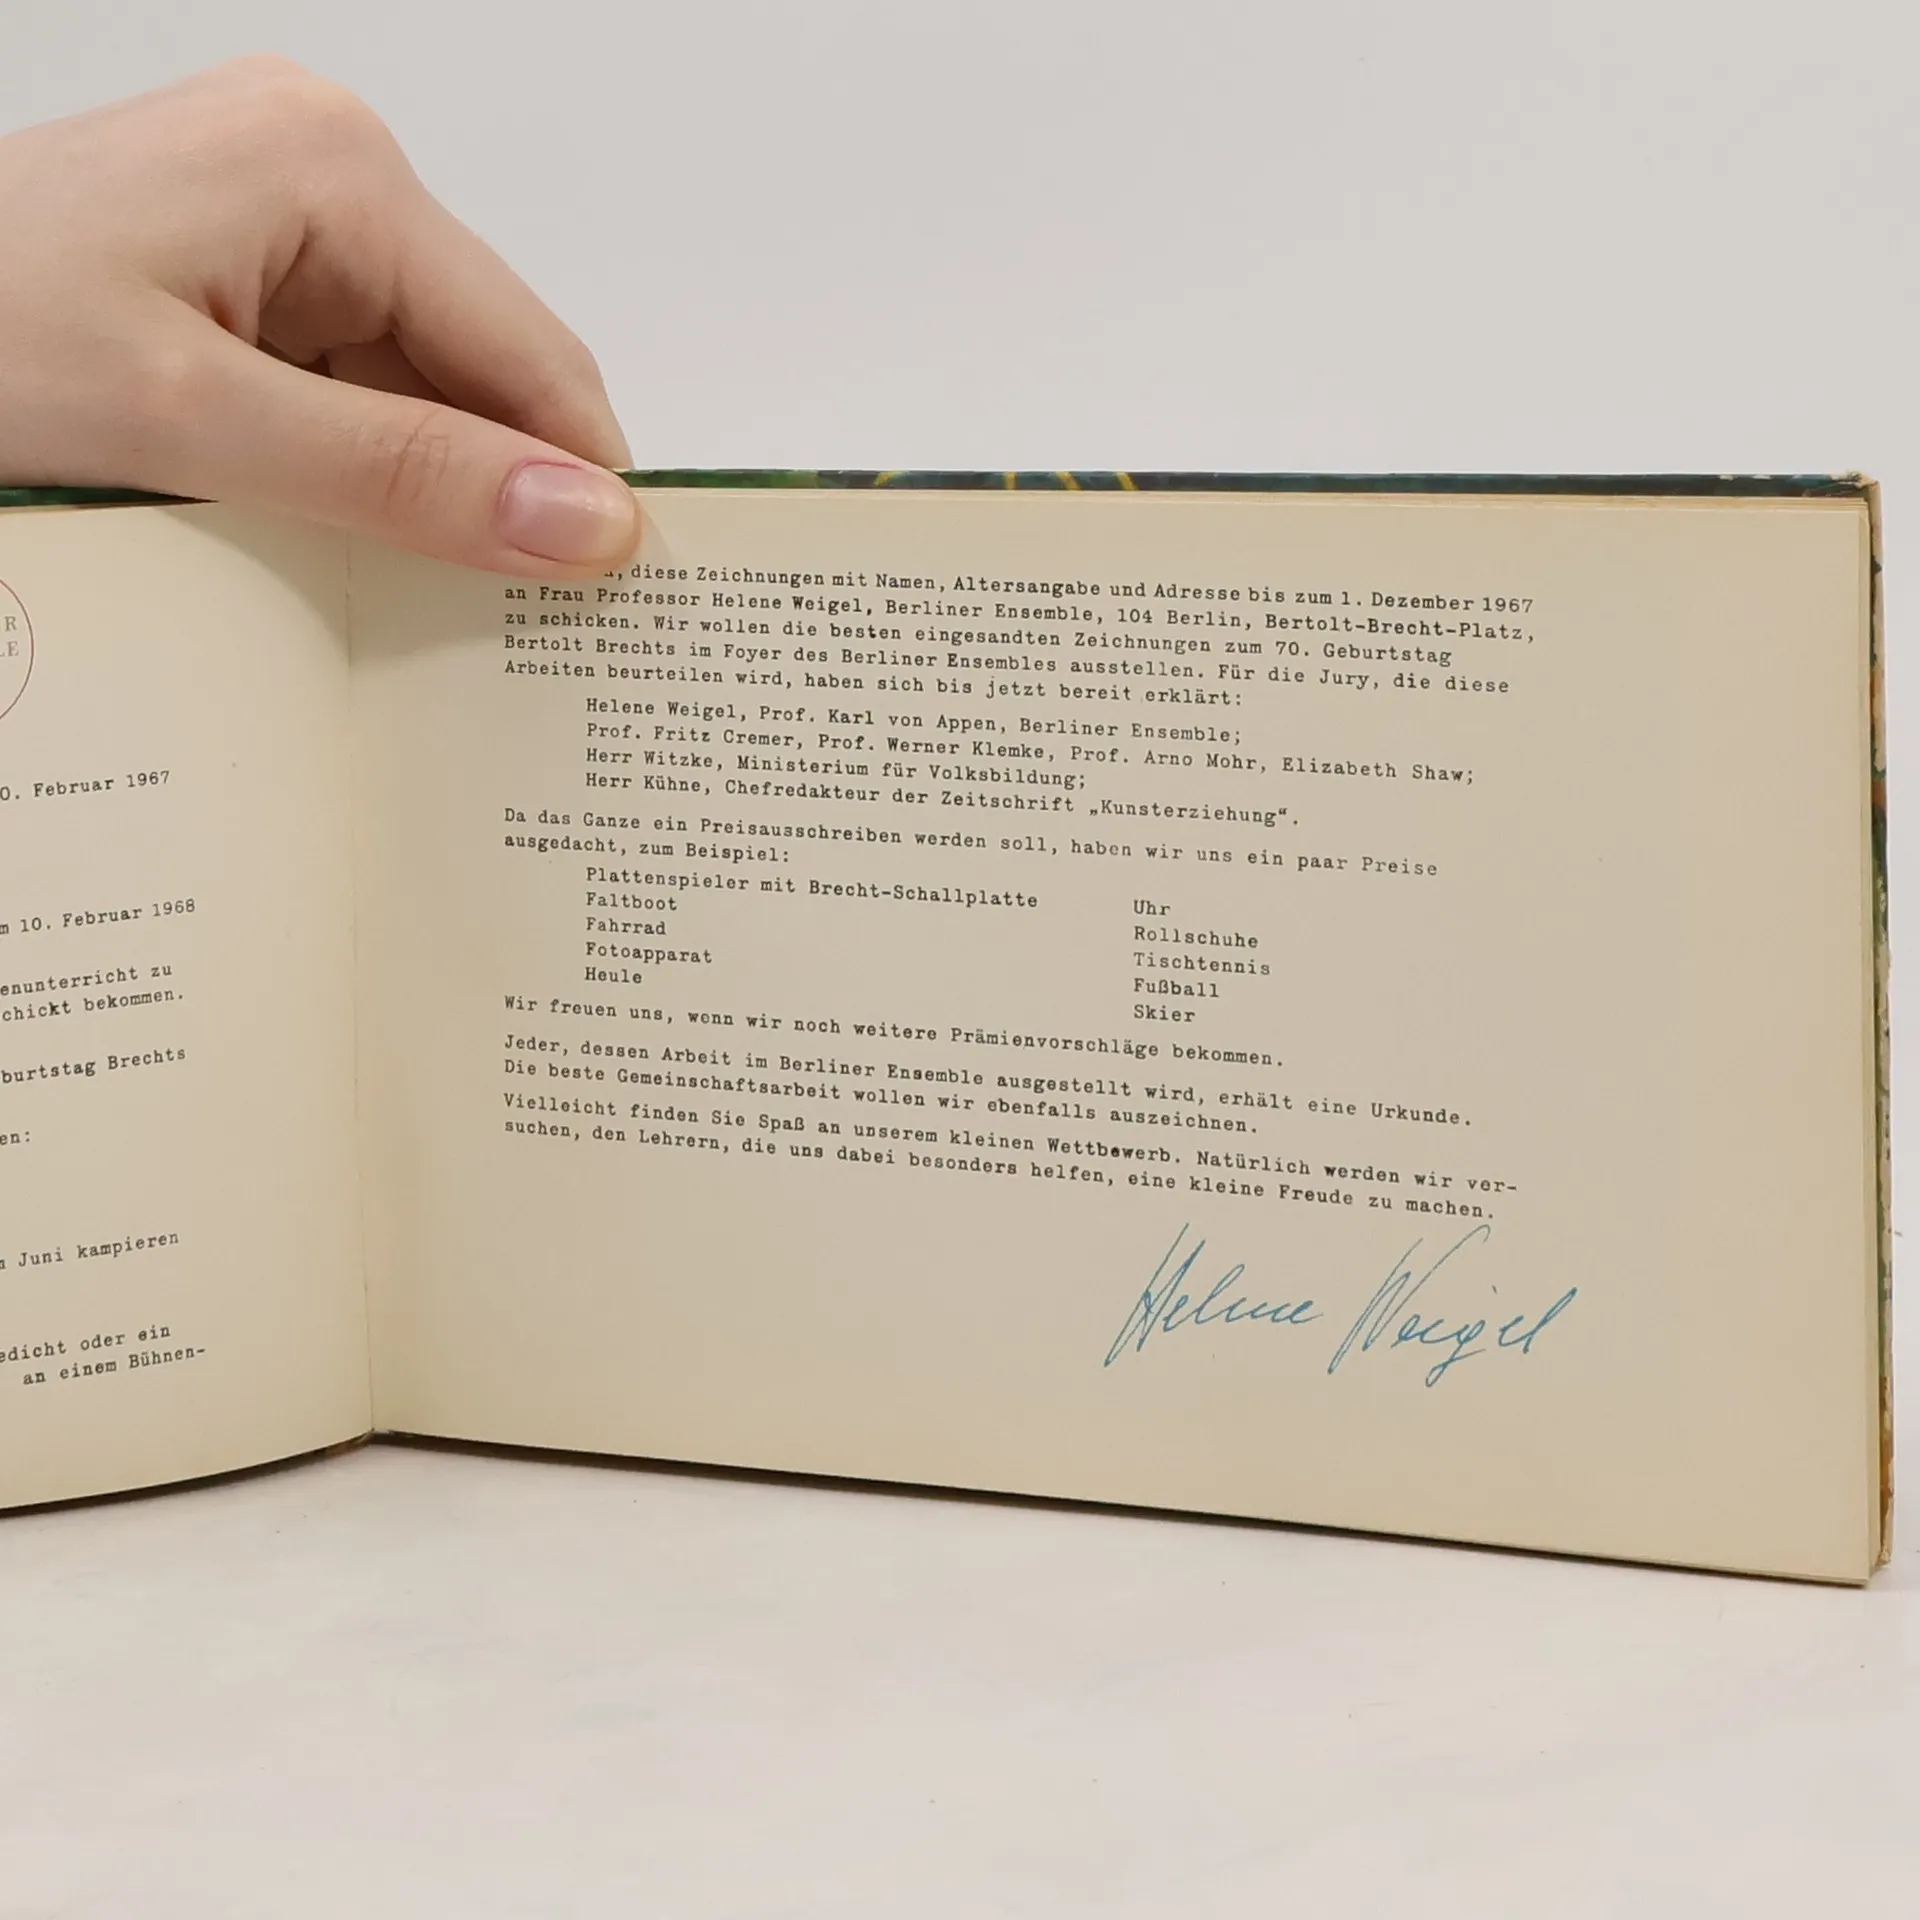 R
LE
0. Februar 1967
m 10. Februar 1968
enunterricht zu
chickt bekommen.
burtstag Brechts
en:
Juni kampieren
edicht oder ein
an einem Bühnen-
, diese Zeichnungen mit Namen, Altersangabe und Adresse bis zum 1. Dezember 1967
an Frau Professor Helene Weigel, Berliner Ensemble, 104 Berlin, Bertolt-Brecht-Platz,
zu schicken. Wir wollen die besten eingesandten Zeichnungen zum 70. Geburtstag
Bertolt Brechts im Foyer des Berliner Ensembles ausstellen. Für die Jury, die diese
Arbeiten beurteilen wird, haben sich bis jetzt bereit erklärt:
Helene Weigel, Prof. Karl von Appen, Berliner Ensemble;
Prof. Fritz Cremer, Prof. Werner Klemke, Prof. Arno Mohr, Elizabeth Shaw;
Herr Witzke, Ministerium für Volksbildung;
Herr Kühne, Chefredakteur der Zeitschrift „Kunsterziehung“.
Da das Ganze ein Preisausschreiben werden soll, haben wir uns ein paar Preise
ausgedacht, zum Beispiel:
Plattenspieler mit Brecht-Schallplatte
Faltboot
Fahrrad
Fotoapparat
Heule
Uhr
Rollschuhe
Tischtennis
Fußball
Skier
Wir freuen uns, wenn wir noch weitere Prämienvorschläge bekommen.
Jeder, dessen Arbeit im Berliner Ensemble ausgestellt wird, erhält eine Urkunde.
Die beste Gemeinschaftsarbeit wollen wir ebenfalls auszeichnen.
Vielleicht finden Sie Spaß an unserem kleinen Wettbewerb. Natürlich werden wir ver-
suchen, den Lehrern, die uns dabei besonders helfen, eine kleine Freude zu machen.
Helene Weigel